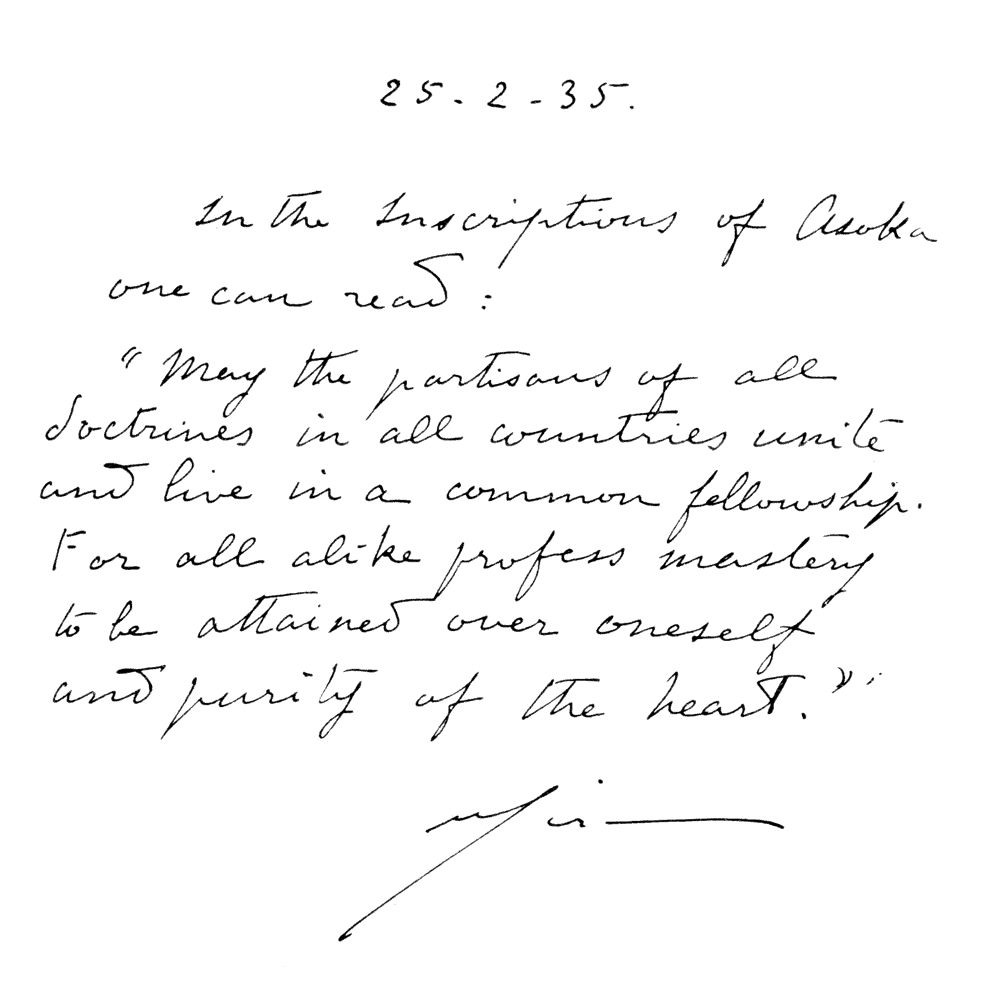 25-2-35.
In the Inscriptions of Asoka
one can read:
"May the partisans of all
doctrines in all countries unite
and live in a common fellowship.
For all alike profess mastery
to be attained over oneself
and purity of the heart."